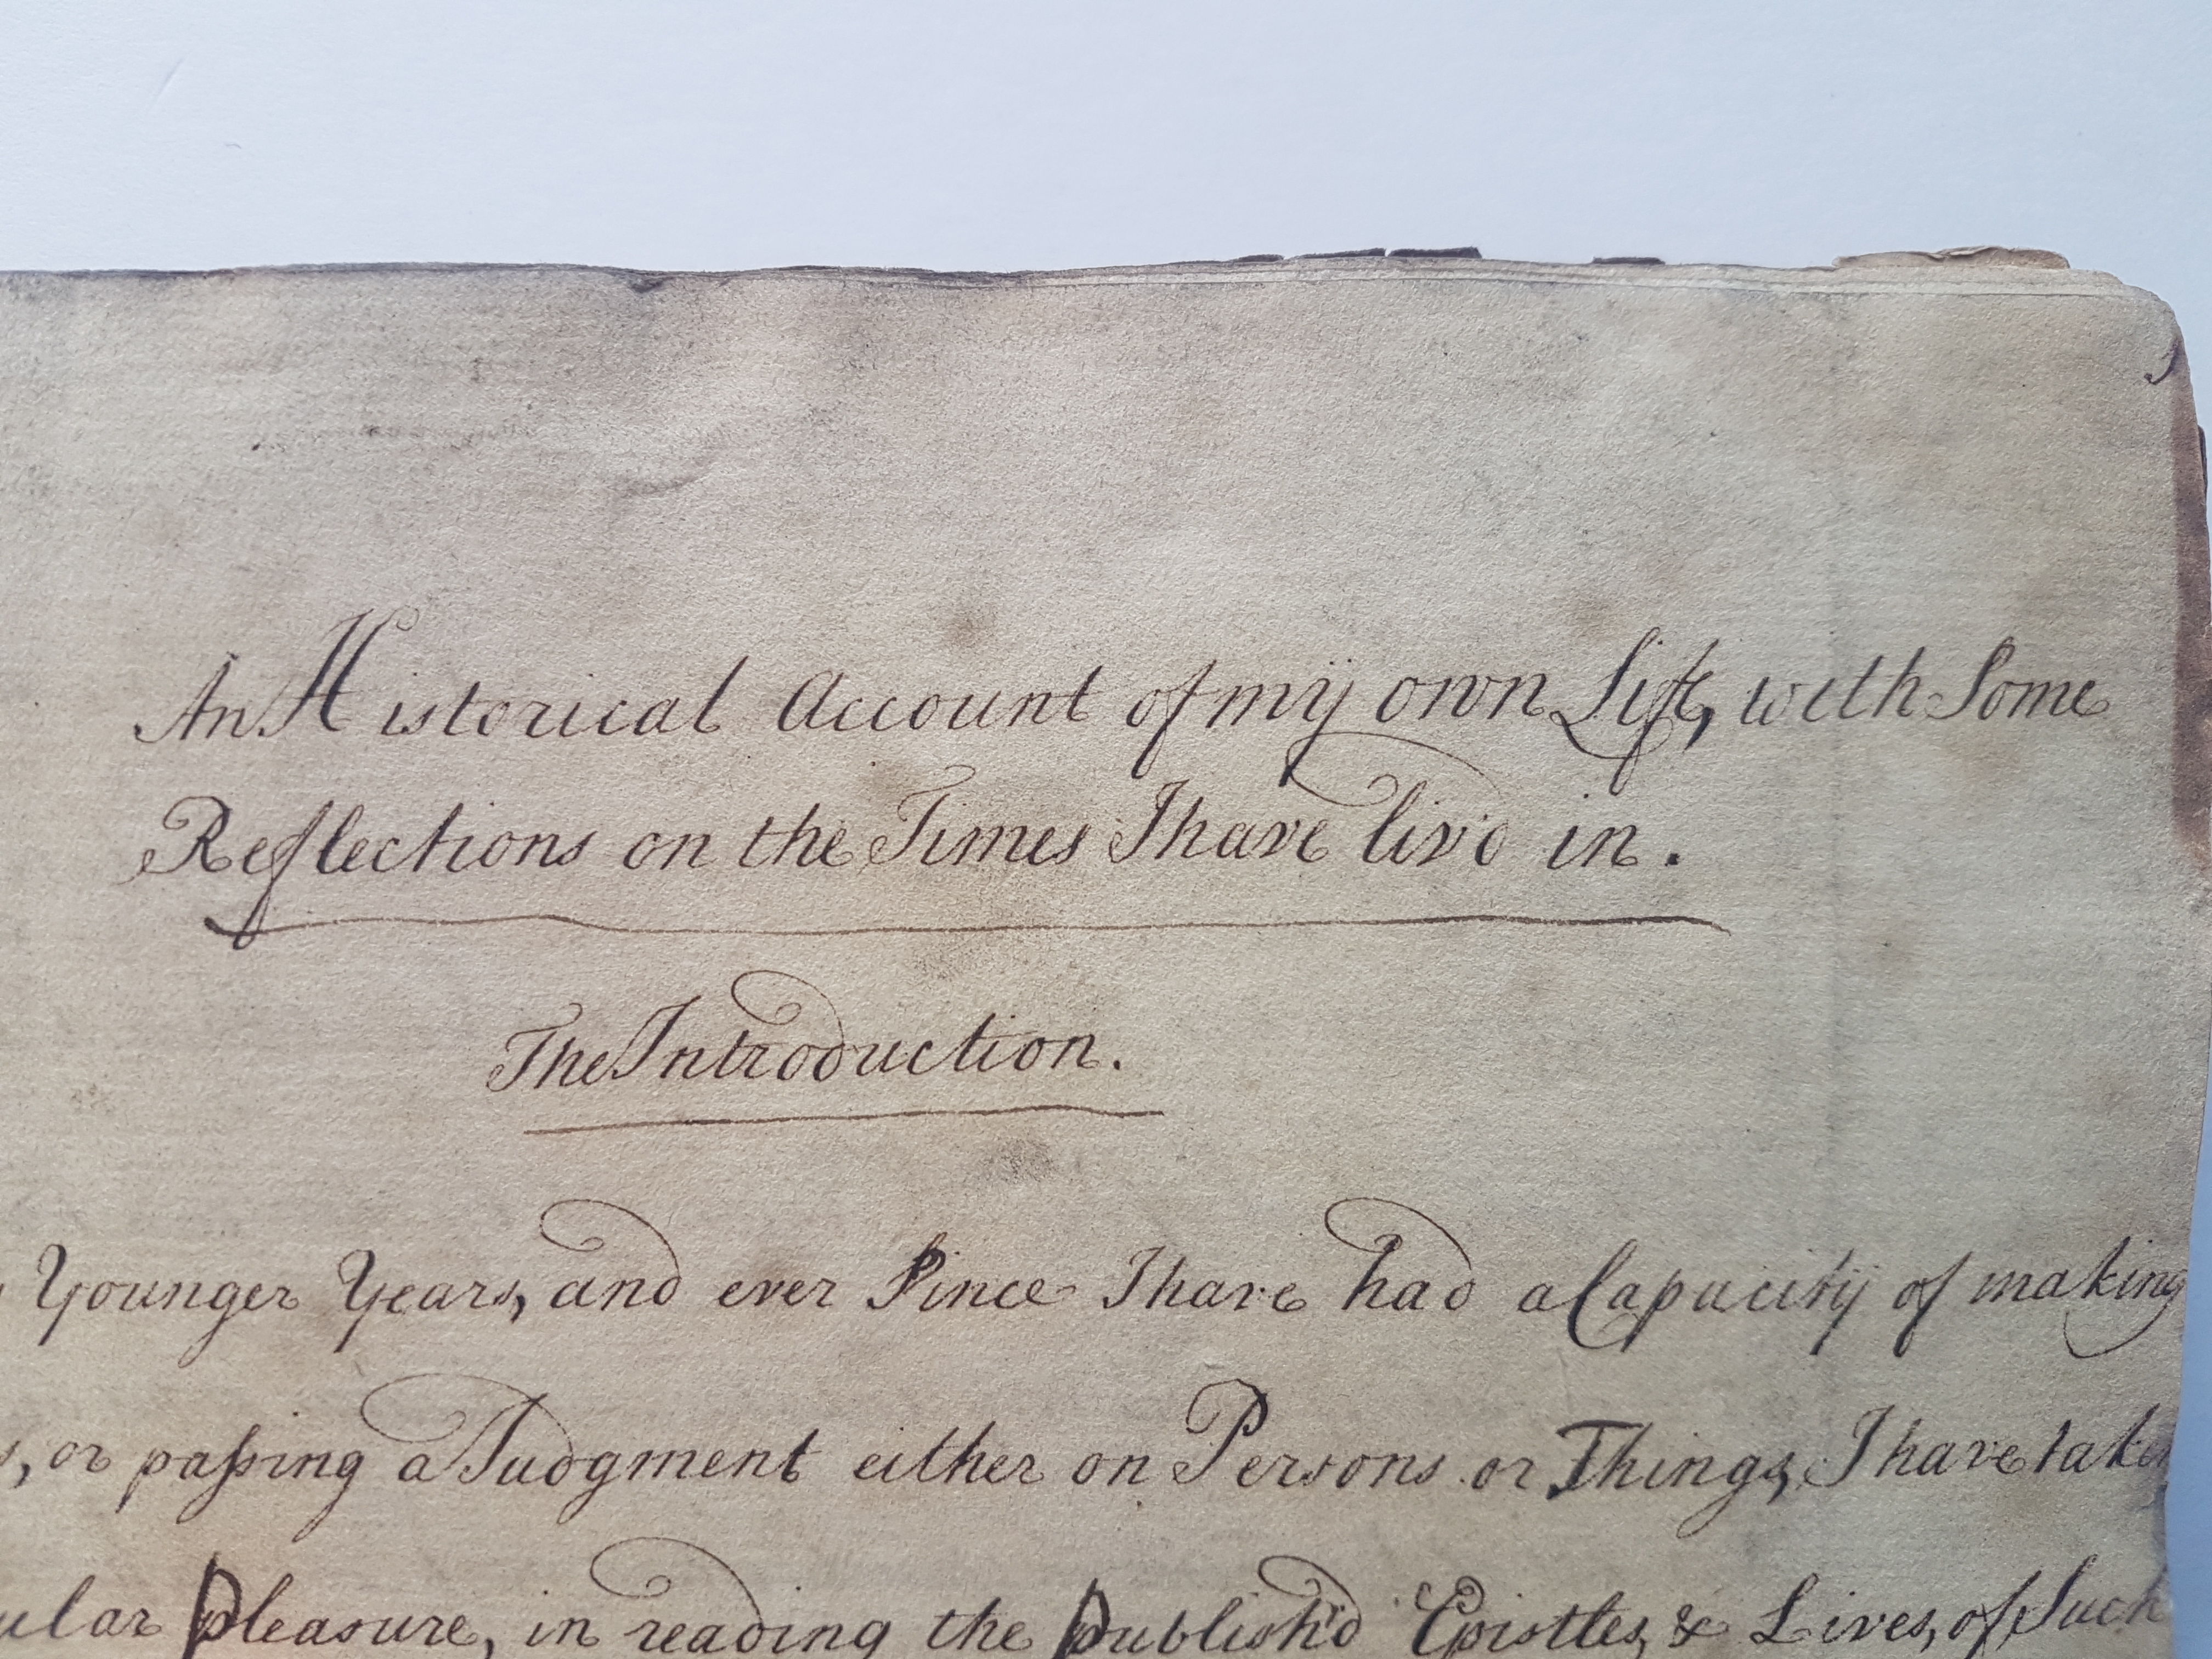 An Historical Account of my own Life, with Some
Reflections on the Times I have liv'd in.
The Introduction.
Younger Years, and ever Since I have had a Capacity of making
s, or passing a Judgment either on Persons or Things, I have taken
ular pleasure, in reading the publish'd Epistles, & Lives, of Such